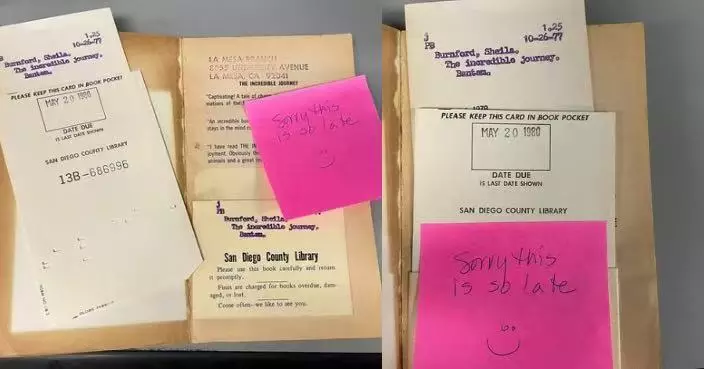 1.25
j 10-26-77
PB
Burnford, Sheila.
The incredible journey.
Bantam.
PLEASE KEEP THIS CARD IN BOOK POCKET
MAY 20 1980
DATE DUE
IS LAST DATE SHOWN
SAN DIEGO COUNTY LIBRARY
13B-686996
LA MESA BRANCH
UNIVERSITY AVENUE
LA MESA, CA. 92041
THE INCREDIBLE JOURNEY
"Captivating! A tale of
nations of the
"An incredible
stays in the mind
"I have read THE
joyment. Obviously
animals and a great
Sorry this
is so late
j
PB
Burnford, Sheila
The incredible journey.
Bantam.
San Diego County Library
Please use this book carefully and return
it promptly.
Fines are charged for books overdue, dam-
aged, or lost.
Come often—we like to see you.
1.25
j 10-26-77
PB
Burnford, Sheila.
The incredible journey.
Bantam.
PLEASE KEEP THIS CARD IN BOOK POCKET
MAY 20 1980
DATE DUE
IS LAST DATE SHOWN
SAN DIEGO COUNTY LIBRARY
Sorry this
is so late